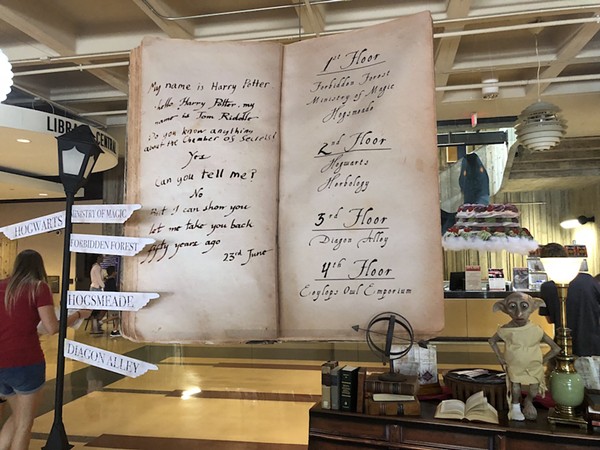 LIBRARY CENTRAL
My name is Harry Potter.
hello Harry Potter, my
name is Tom Riddle
Do you know anything
about the Chamber of Secrets?
Yes
Can you tell me?
No
But I can show you
let me take you back
fifty years ago
23rd June
1st Floor
Forbidden Forest
Ministry of Magic
Hogsmeade
2nd Floor
Hogwarts
Herbology
3rd Floor
Diagon Alley
4th Floor
Eeylops Owl Emporium
MINISTRY OF MAGIC
HOGWARTS
FORBIDDEN FOREST
HOGSMEADE
DIAGON ALLEY